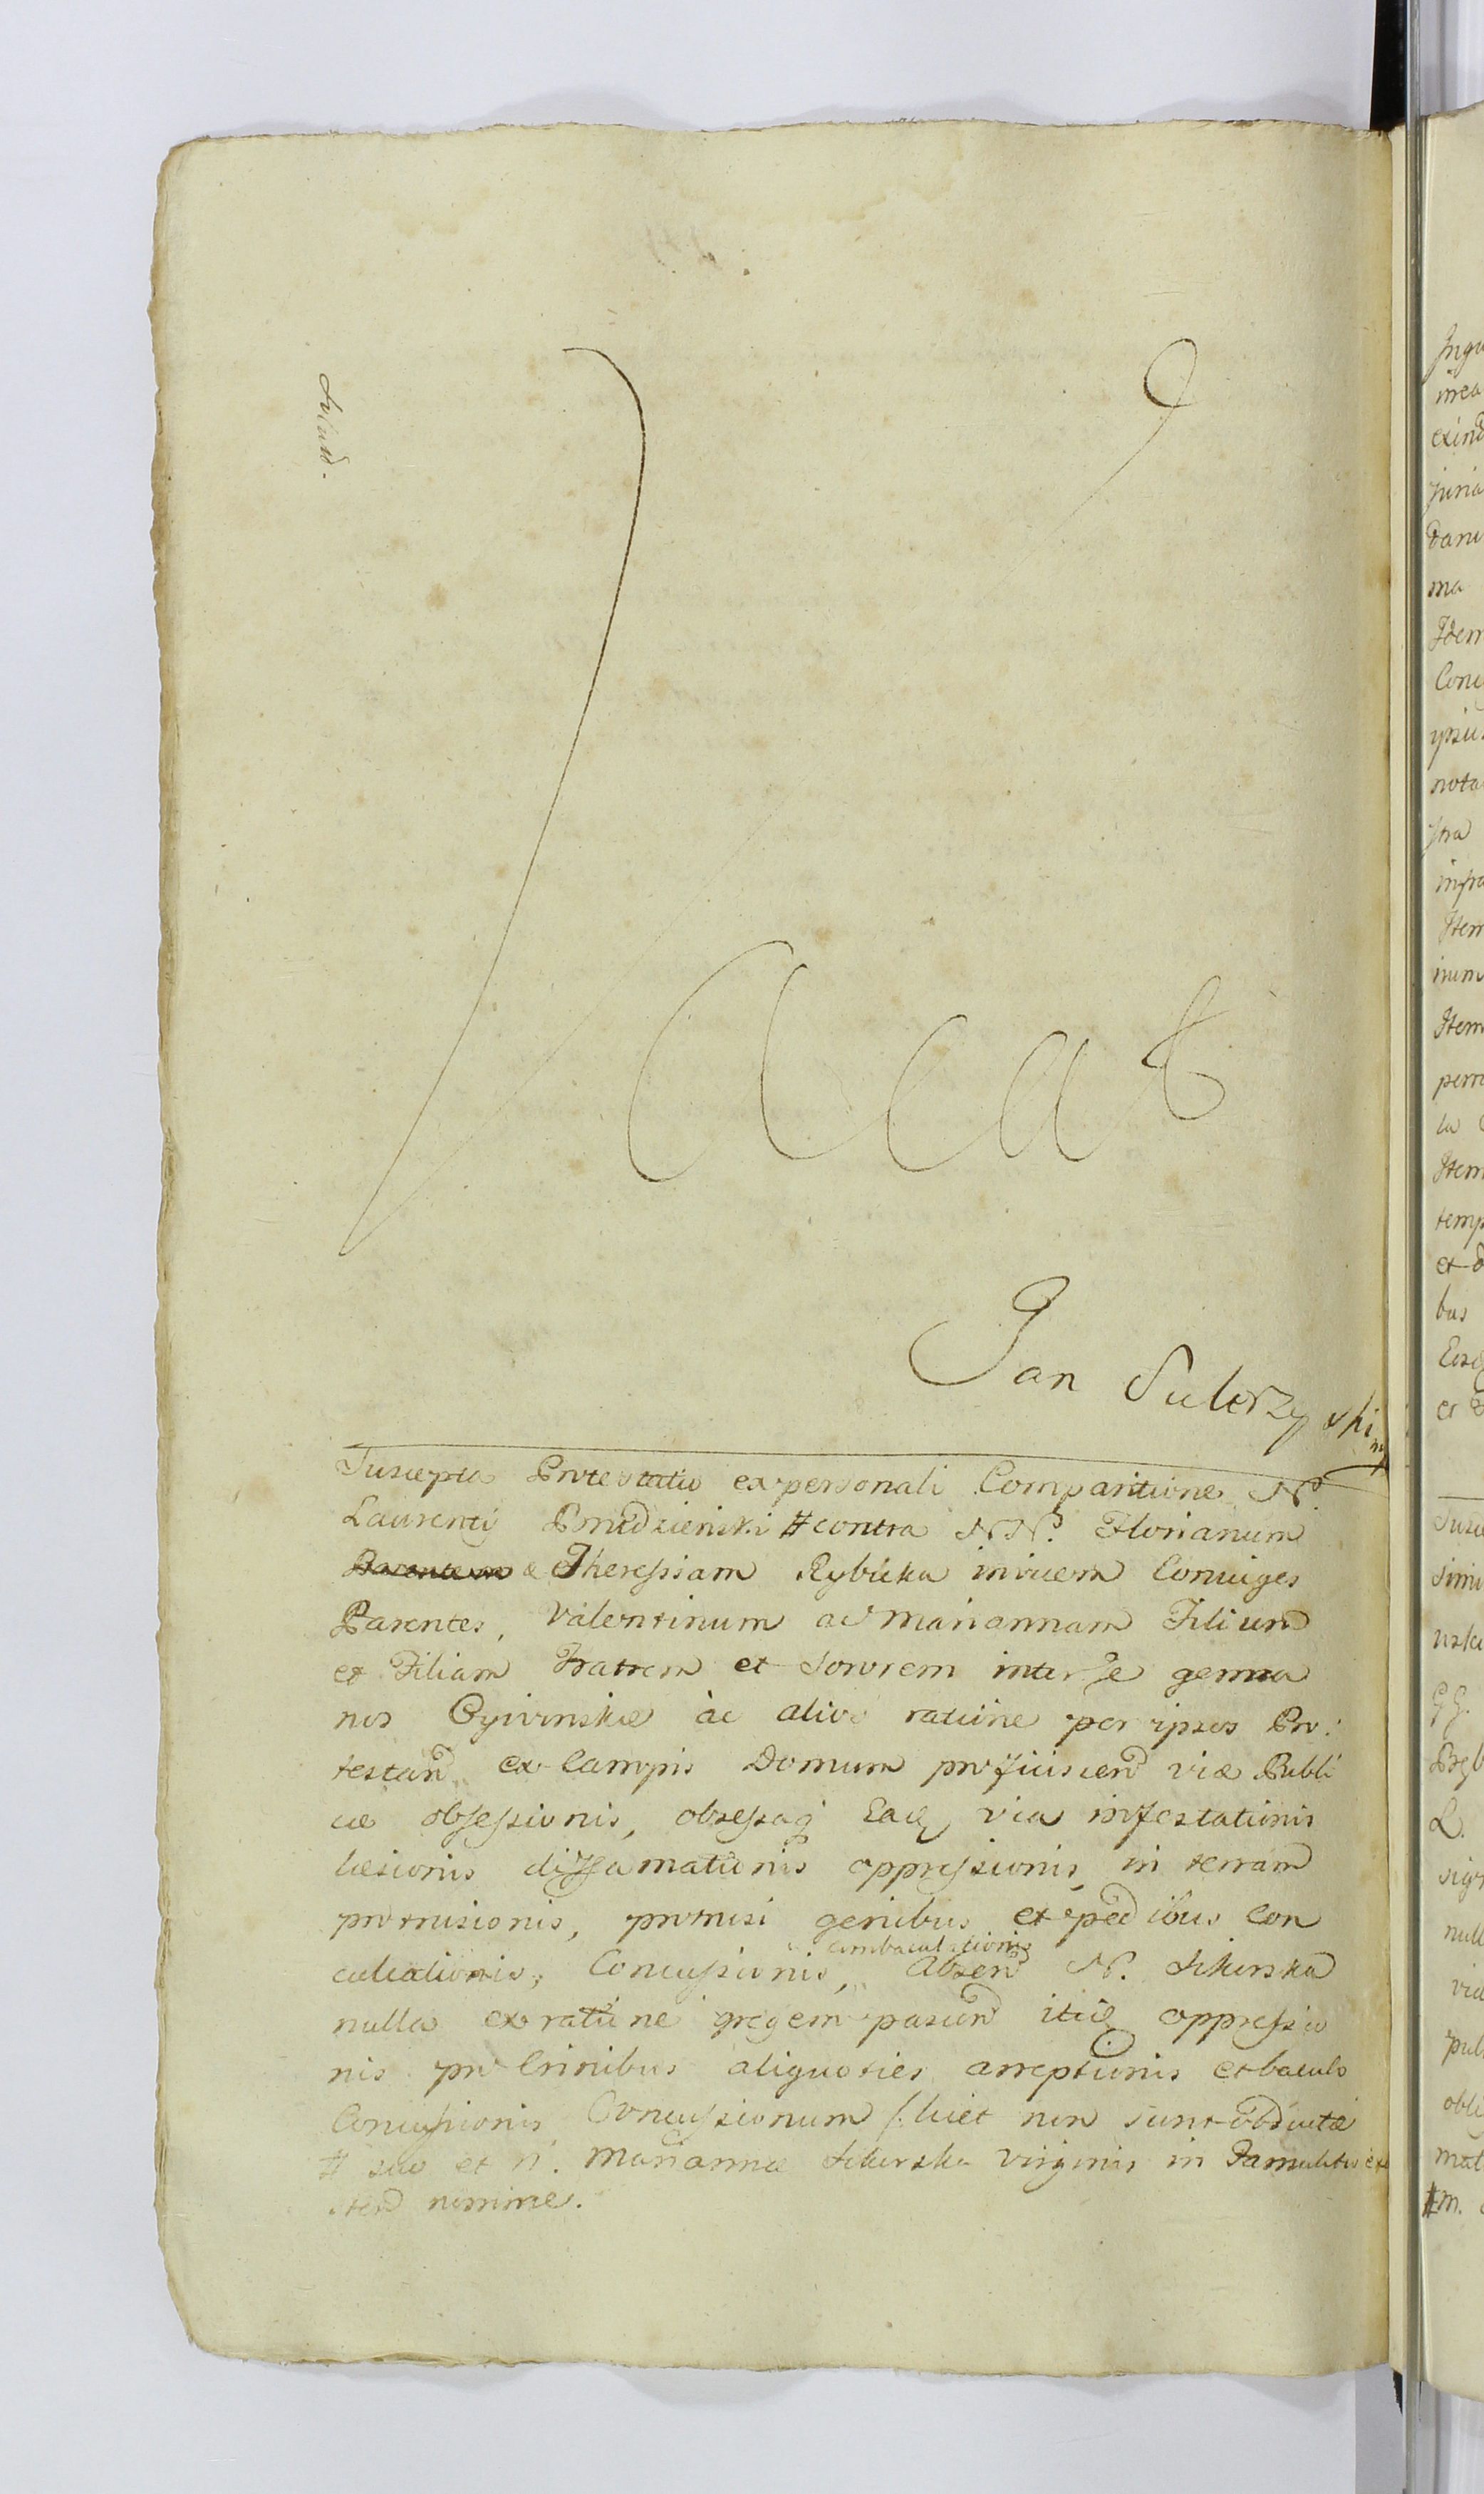 Vacat
Jan Sulerzyski mp
Suscepta Protestatio ex personali Comparitione N.
Laurentij Brudzienski # contra NN. Florianum
Parentem & Theressiam Rybicka invicem Coniuges
Parentes, Valentinum ac Mariannam Filium
et Filiam Fratrem et Sororem inter se germa
nos ac alios ratione per ipsos Pro:
testan. ex Campis Domum proficiscen viæ Publi
cæ obsessionis, obsessaq Eaq via infestationis
læsionis diffamationis oppressionis, in terram
prostrusionis, genibus et pedibus Con
culcationis, Concussionis, combaculationis Absen N. Sikerska
nulla ex ratione gregem pascen itiq oppressio
nis pro Crinibus aliquoties arreptionis et baculo
Concussionis Concussionum /: licet non sunt obductæ
# suo et N. Mariannæ Sikerska Virginis in Famulitio exi
sten nomine.